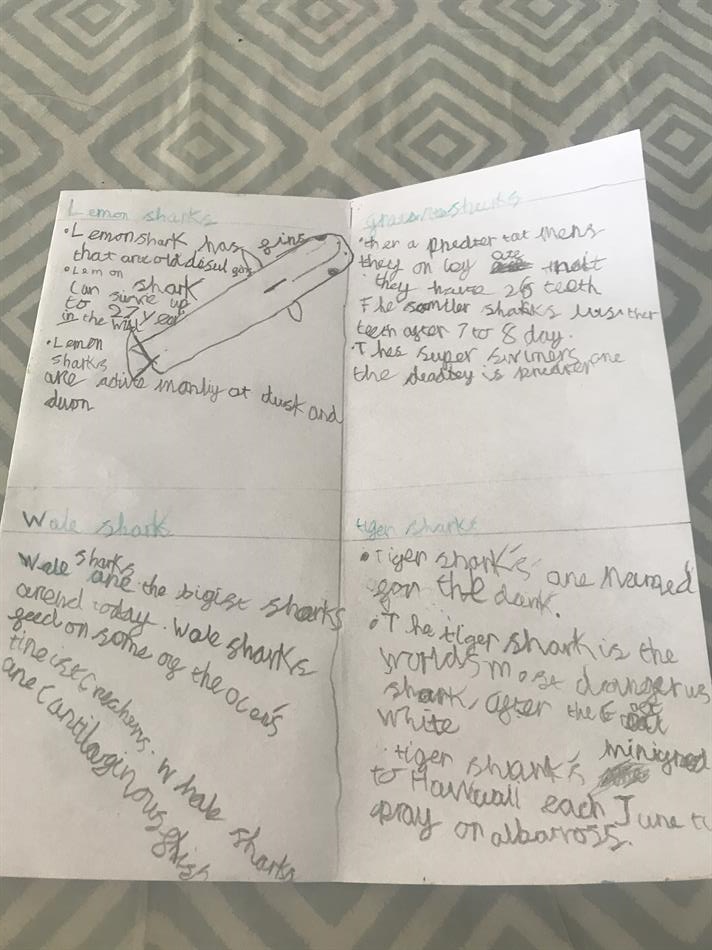 Lemon sharks
• Lemon shark has fins
that are old
• Lemon shark
can up
to 27 year
in the wild
• Lemon
sharks
are active manly at dusk and
dwon
sharks
• ther a predter tat mens
they on loy are
they have 26 teeth
The smller sharks ther
teeth after 7 to 8 day.
• Thes super are
the deadley is predter
Wale shark
Wale sharks are the bigist sharks
arend today. Wale sharks
feed on some of the ocens
tineist Creachers. Whale sharks
are Cantilaginous fish
tiger sharks
• Tiger shark's are named
for the
• The tiger shark is the
worlds most dangerus
shark, after the
white
• tiger shark's
to each June to
pray on albatross.